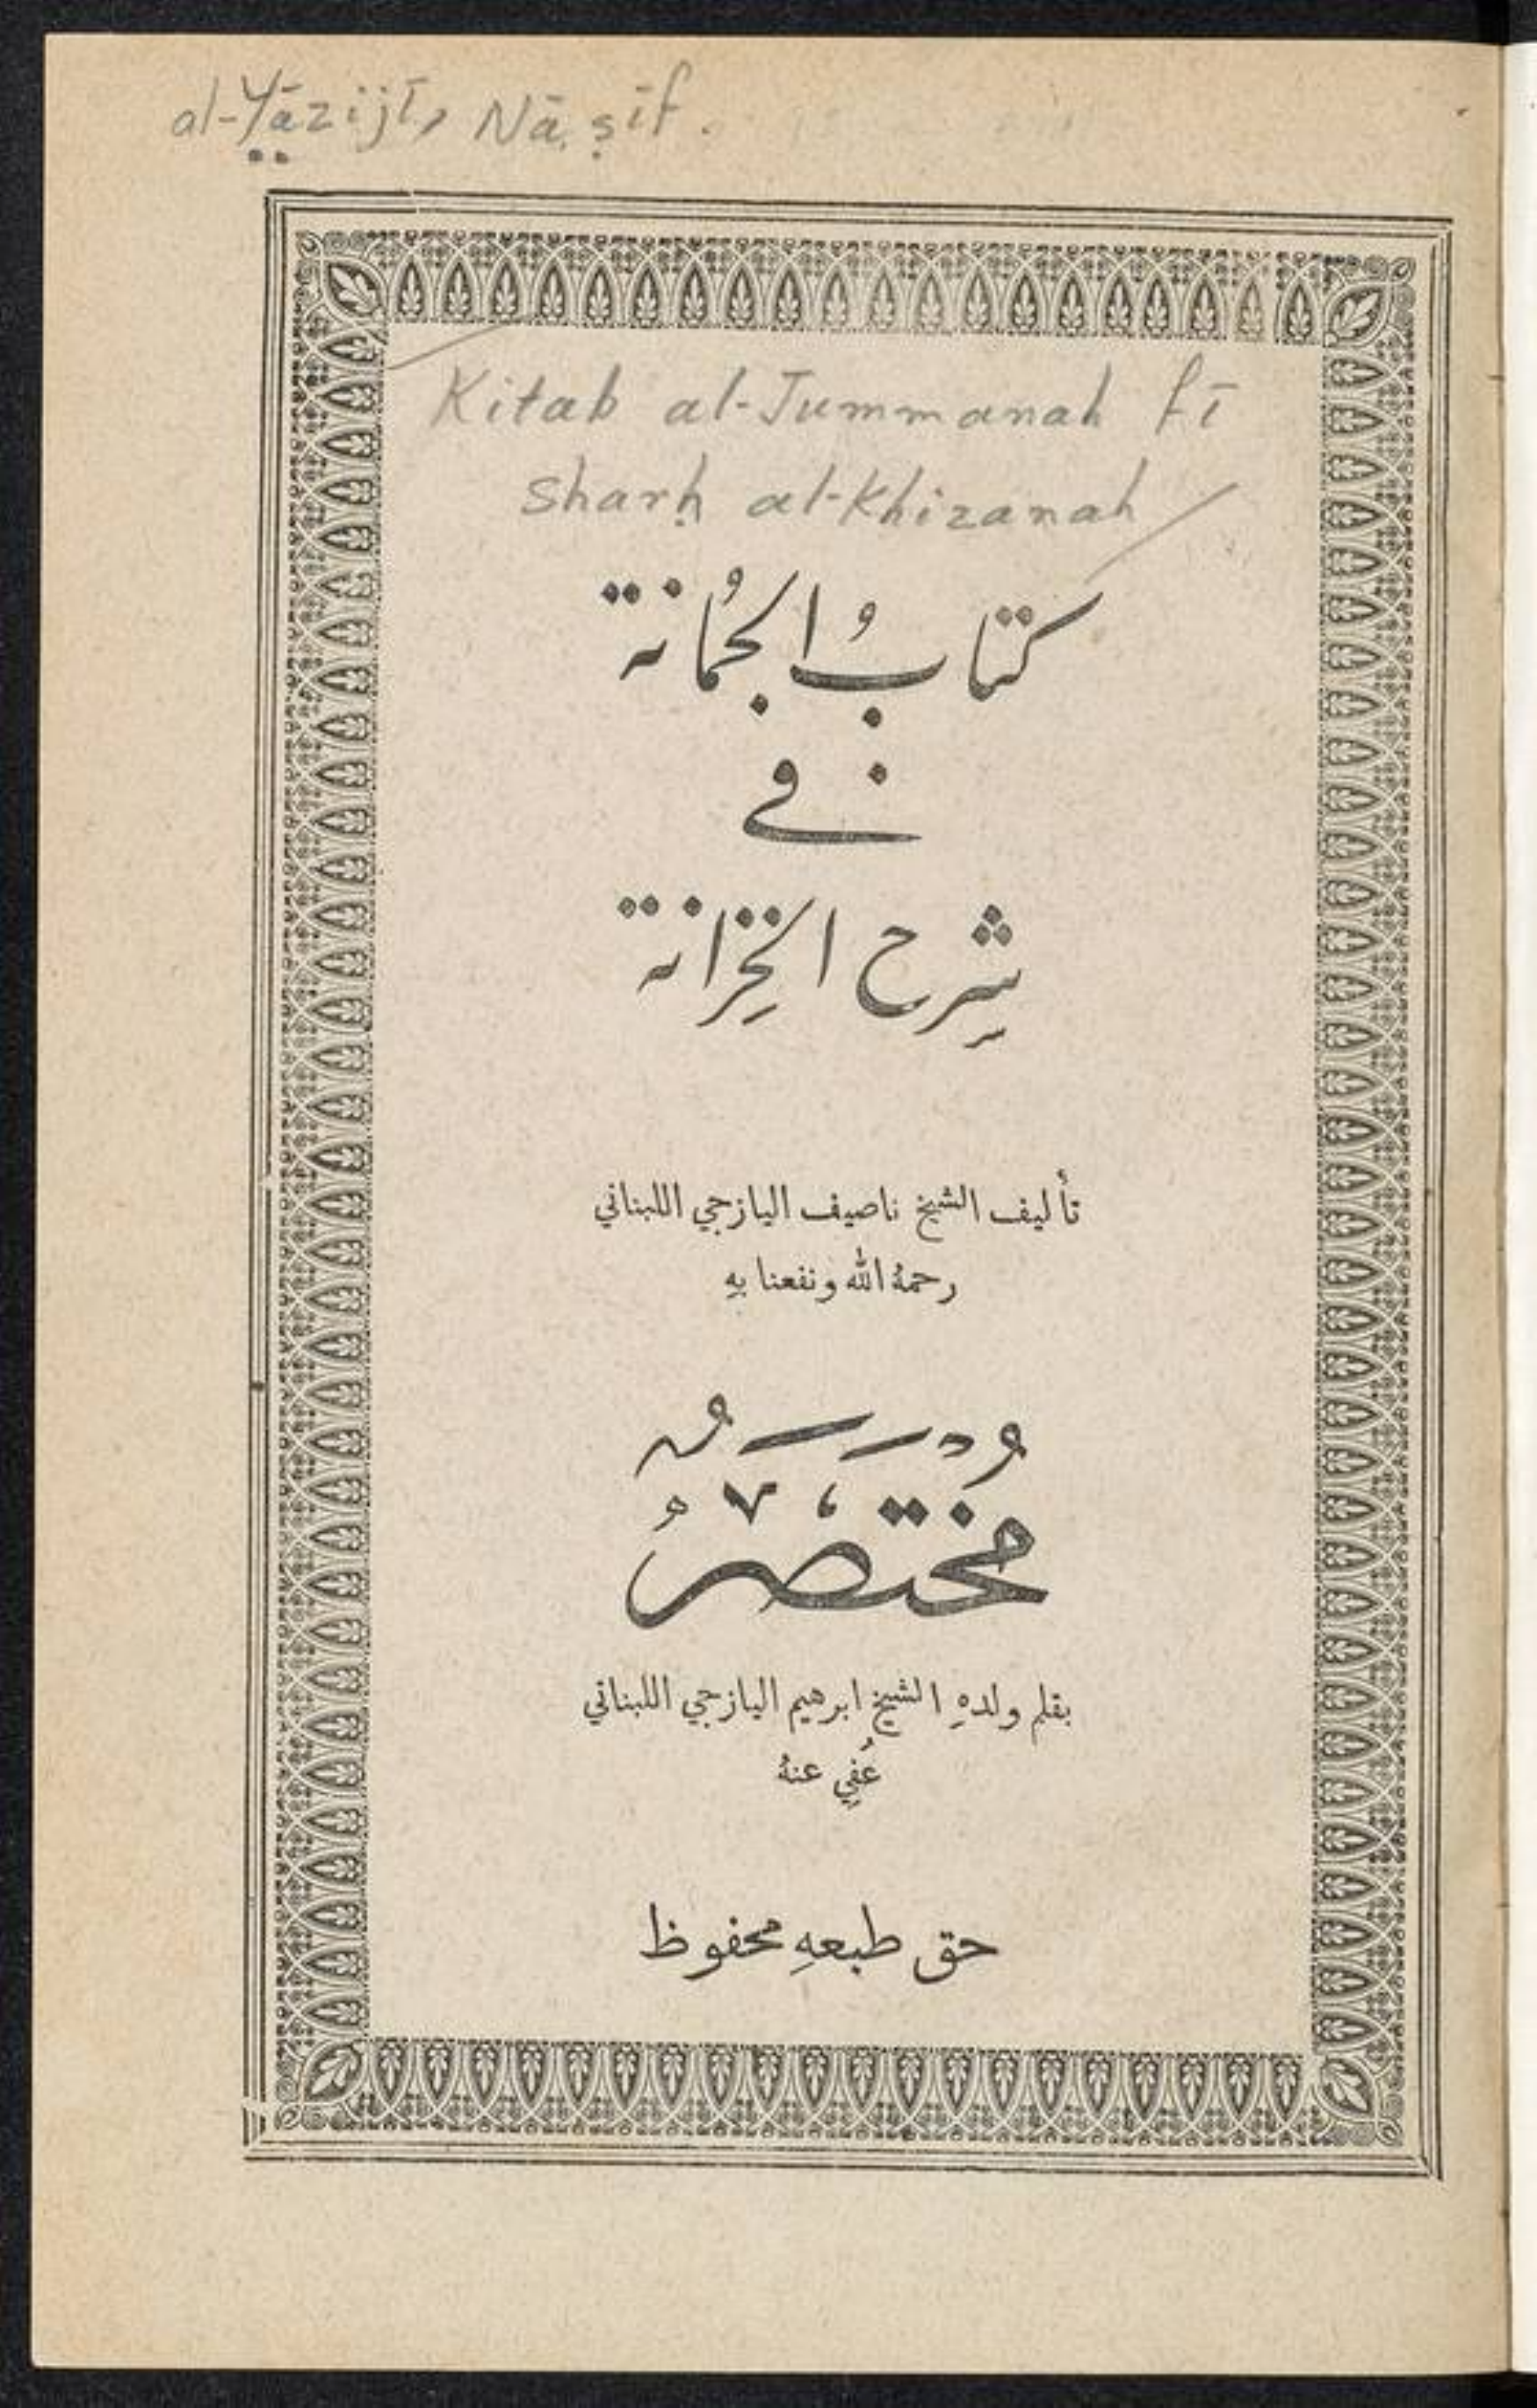 al-Yāzijī, Nāṣīf.
Kitab al-Jummanah fī
sharḥ al-Khizanah
كتابُ الجُمانة
في
شرح الخِزانة
تأليف الشيخ ناصيف اليازجي اللبناني
رحمهُ الله ونفعنا بهِ
مُختَصَرُ
بقلم ولدهِ الشيخ ابرهيم اليازجي اللبناني
عُفِي عنهُ
حق طبعهِ محفوظ